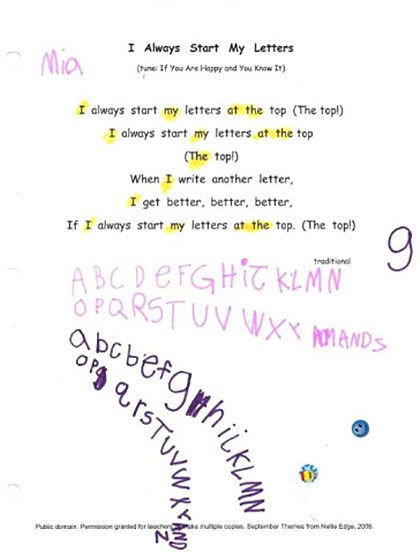 Mia
I Always Start My Letters
(tune: If You Are Happy and You Know It)
I always start my letters at the top (The top!)
I always start my letters at the top
(The top!)
When I write another letter,
I get better, better, better,
If I always start my letters at the top. (The top!)
traditional
g
A B C D e F G H i J K L M N
O P Q R S T U V W X Y
a b c b e f g h i j K L M N
o p q r s T U V W X Y AND
Z
Public domain. Permission granted for teachers to make multiple copies. September Themes from Nellie Edge, 2006.